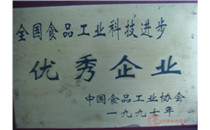 全国食品工业科技进步
优秀企业
中国食品工业协会
一九九七年